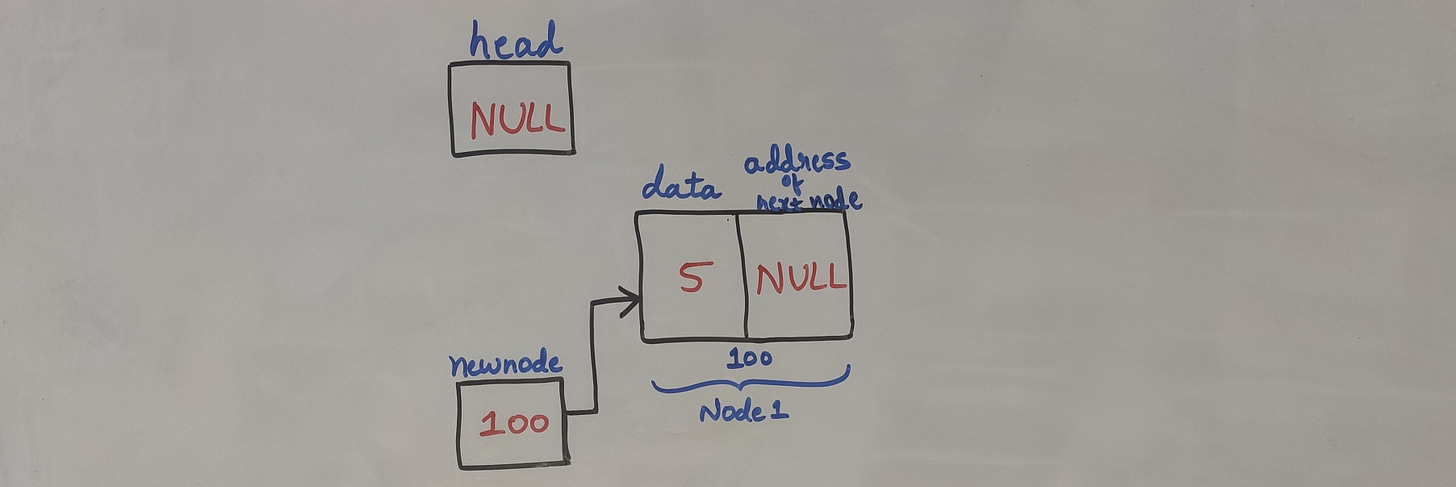 head
NULL
data
address
of
next node
5
NULL
100
Node 1
newnode
100